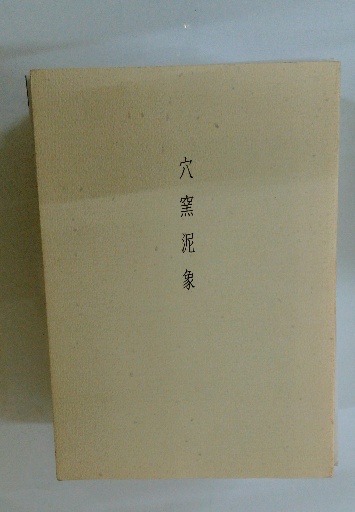 穴窯泥象